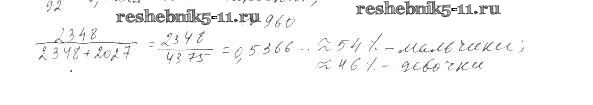 92
reshebnik5-11.ru
reshebnik5-11.ru
960
2348/(2348+2027) = 2348/4375 = 0,5366.. ≈54% - мальчики;
≈46% - девочки